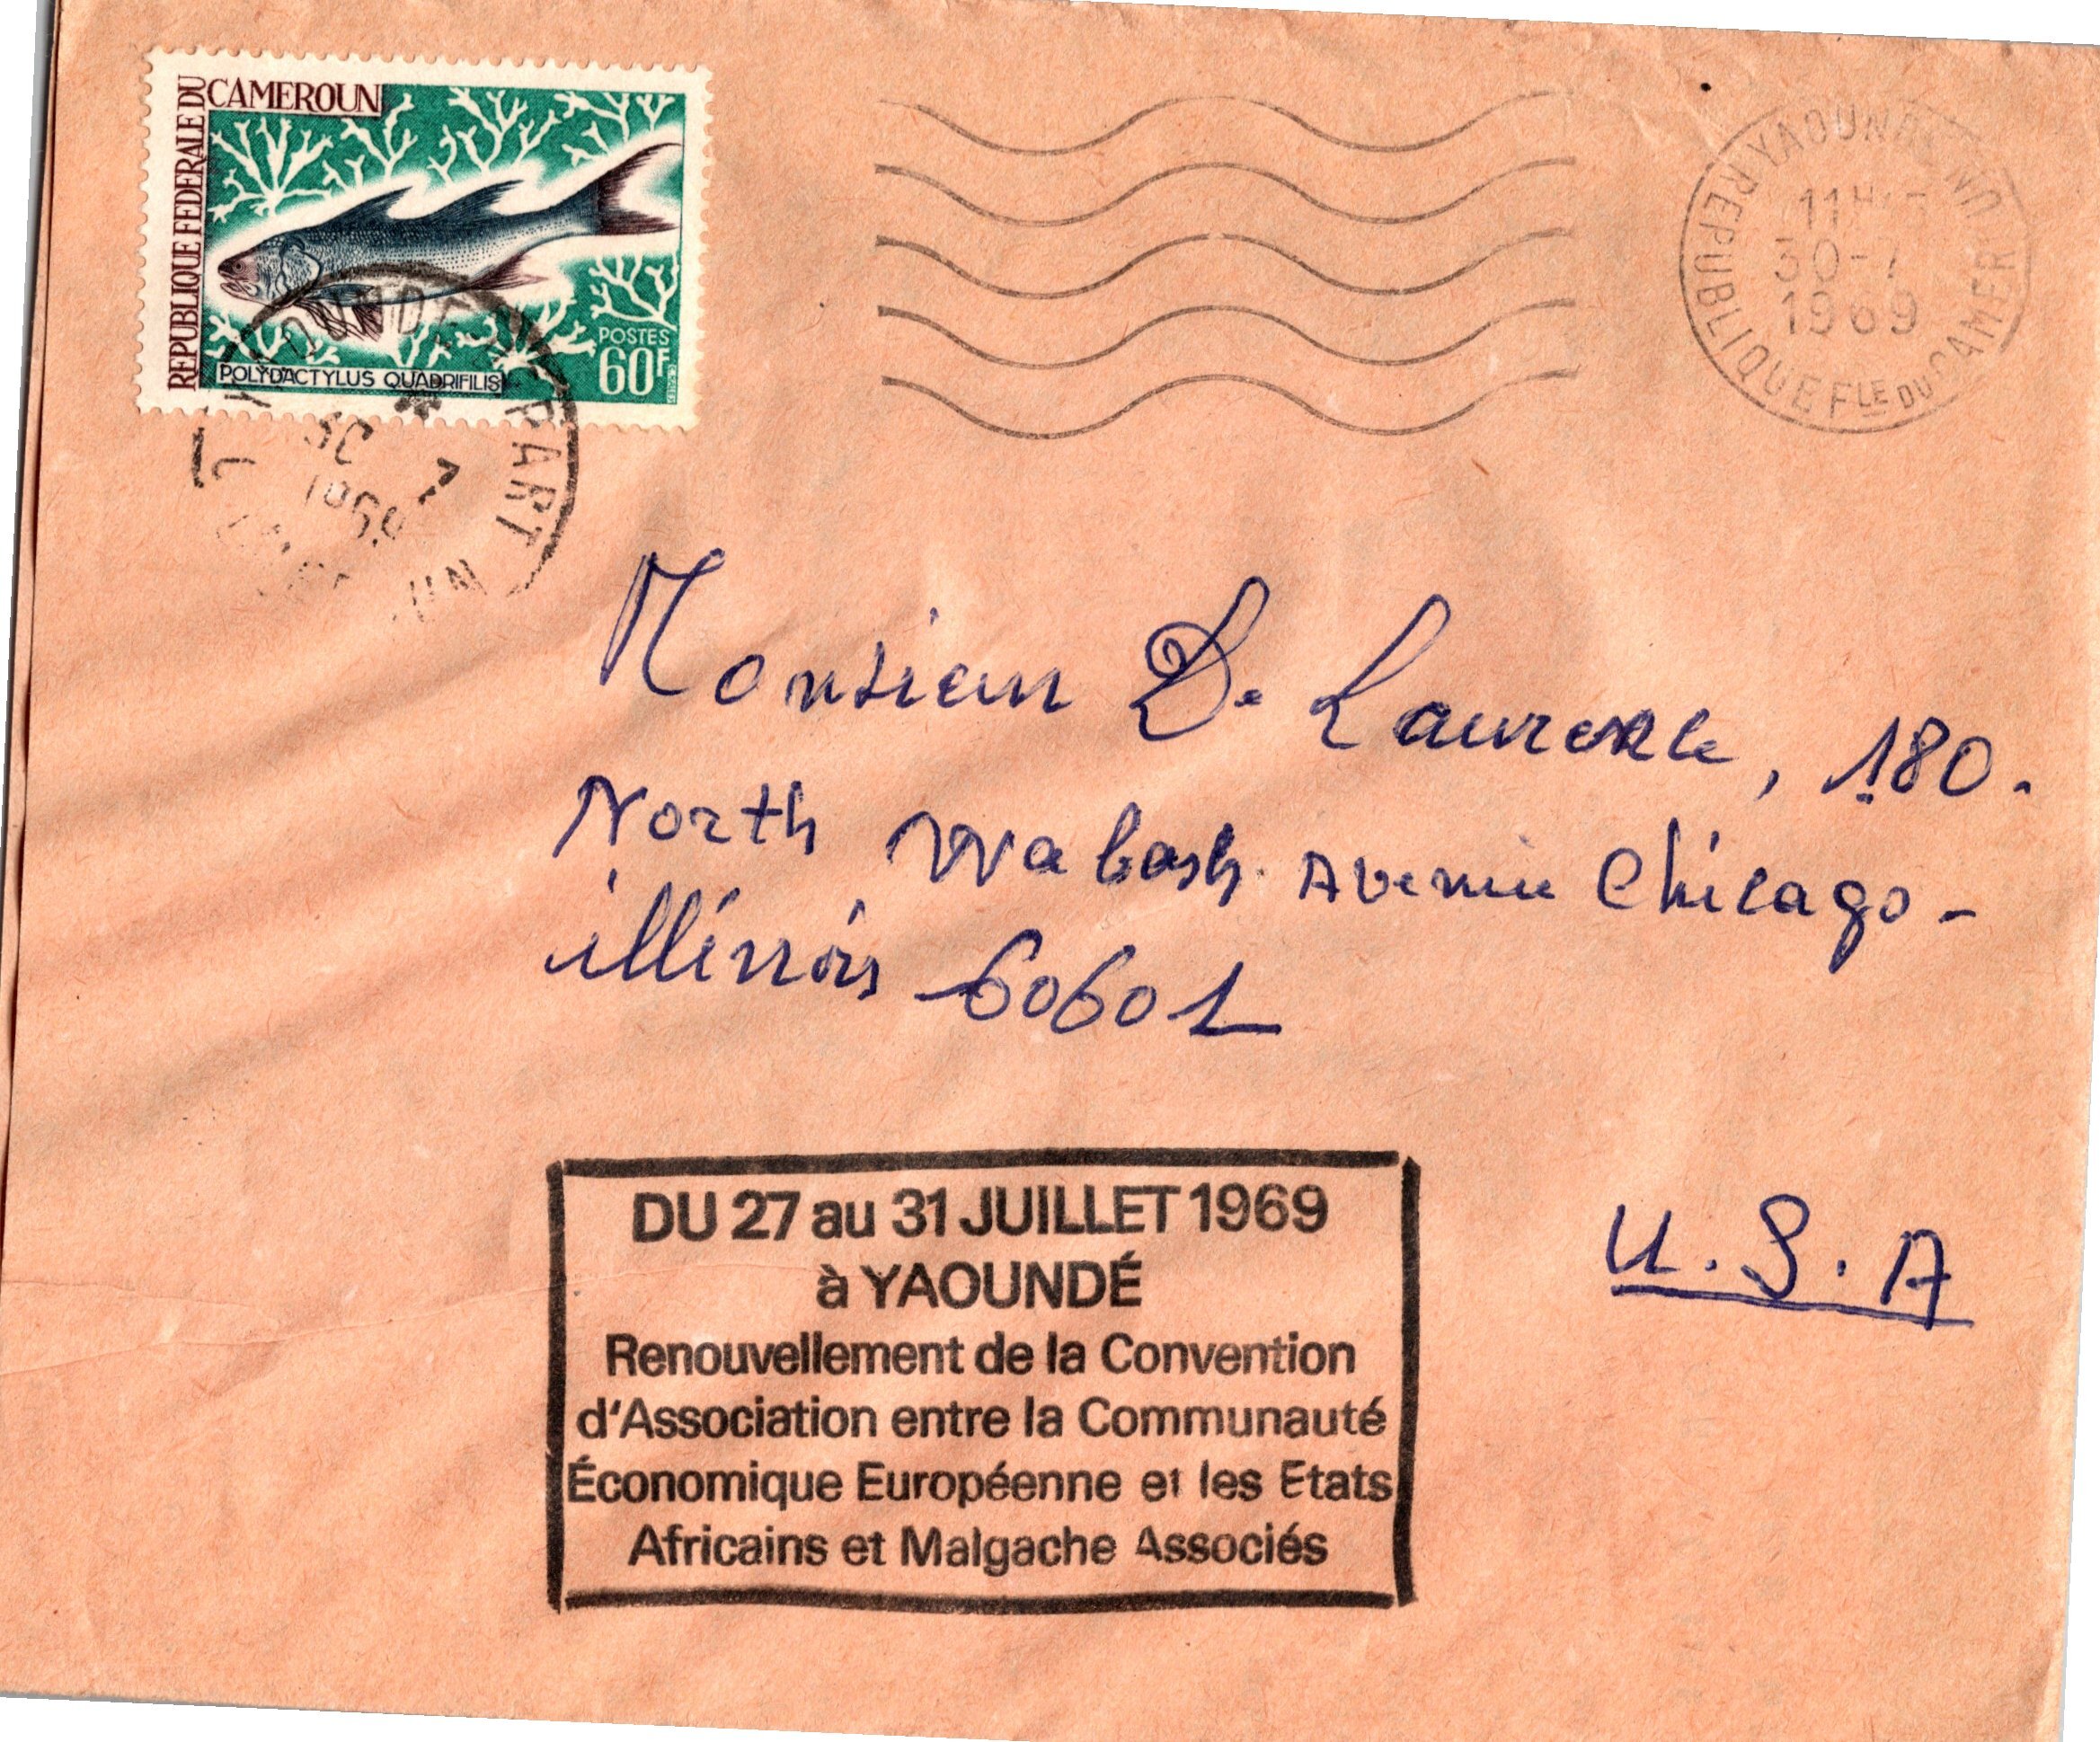 REPUBLIQUE FEDERALE DU
CAMEROUN
POSTES
60F
POLYDACTYLUS QUADRIFILIS
YAOUNDE
PART
1969
YAOUNDE
11H
30-7
1969
REPUBLIQUE FLE DU CAMER
Monsieur D. Laurence, 180.
North Wabash. Avenue Chicago-
illinois 60601
U.S.A
DU 27 au 31 JUILLET 1969
à YAOUNDÉ
Renouvellement de la Convention
d'Association entre la Communauté
Économique Européenne et les Etats
Africains et Malgache Associés